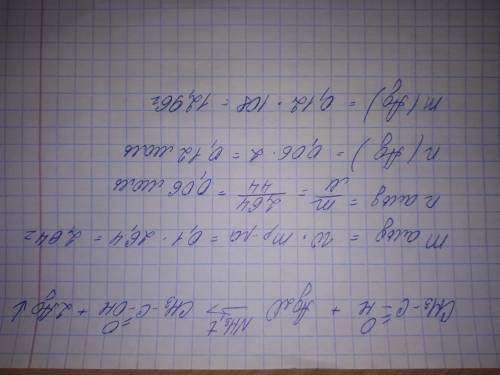 CH₃-C(=O)-H + Ag₂O —NH₃,t→ CH₃-C(=O)-OH + 2Ag↓
m альд = w · m р-ра = 0,1 · 26,4 = 2,64 г
n альд = m/M = 2,64/44 = 0,06 моль
n(Ag) = 0,06 · 2 = 0,12 моль
m(Ag) = 0,12 · 108 = 12,96 г